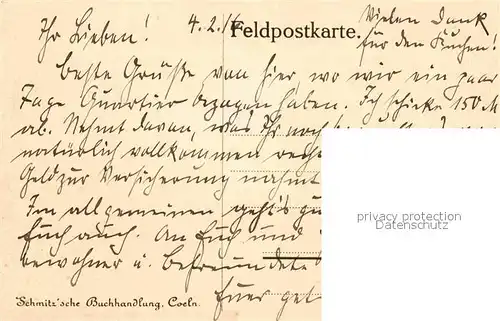 Feldpostkarte.
Ihr Lieben! 4.2.16
Vielen Dank
für den Kuchen!
Beste Grüße von hier, wo wir ein paar
Tage Quartier bezogen haben. Ich schicke 150 M
ab. Nehmt davon, was Ihr noch
natürlich vollkommen recht
Geld zur Versicherung nahmt
Im allgemeinen geht's gu
Euch auch. An Euch und
bewohner u. Befreundete
Euer get
privacy protection
Datenschutz
Schmitz'sche Buchhandlung, Coeln.